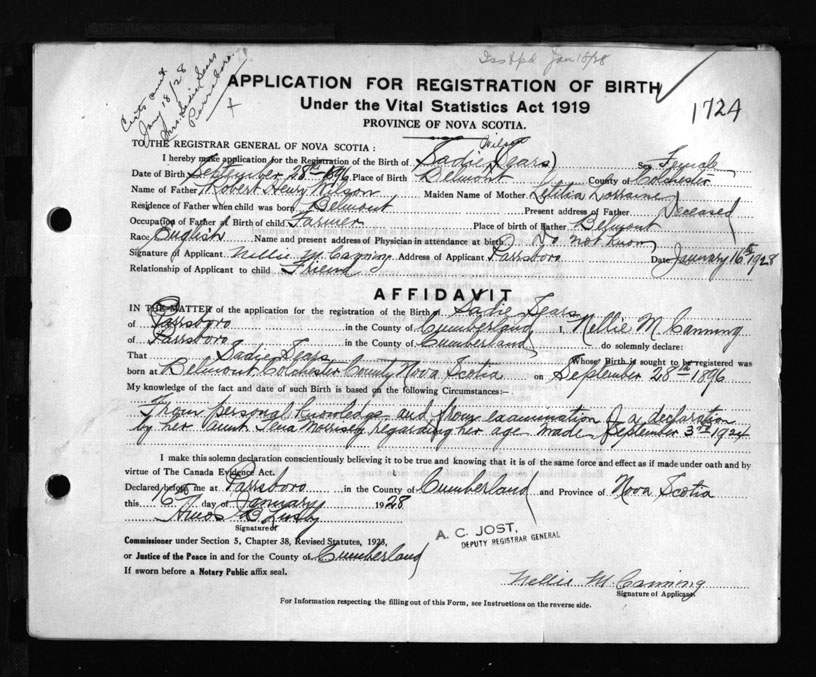 Iss'd Jan 18/28
Certs sent
Jan 18/28
Mrs Sadie Sears
Parrsboro
APPLICATION FOR REGISTRATION OF BIRTH
Under the Vital Statistics Act 1919
1724
PROVINCE OF NOVA SCOTIA.
TO THE REGISTRAR GENERAL OF NOVA SCOTIA :
Wilson
I hereby make application for the Registration of the Birth of Sadie (Sears) Sex Female
Date of Birth September 28th 1896 Place of Birth Belmont County of Colchester
Name of Father Robert Henry Wilson Maiden Name of Mother Lorraine
Residence of Father when child was born Belmont Present address of Father Deceased
Occupation of Father at Birth of child Farmer Place of birth of Father Belmont
Race English Name and present address of Physician in attendance at birth Do not know
Signature of Applicant Nellie M. Canning Address of Applicant Parrsboro Date January 16th 1928
Relationship of Applicant to child Friend
AFFIDAVIT
IN THE MATTER of the application for the registration of the Birth of Sadie Sears
of Parrsboro in the County of Cumberland I, Nellie M Canning
of Parrsboro in the County of Cumberland do solemnly declare:
That Sadie Sears Whose Birth is sought to be registered was
born at Belmont, Colchester County Nova Scotia on September 28th 1896
My knowledge of the fact and date of such Birth is based on the following Circumstances:—
From personal knowledge and from examination of a declaration
by her aunt Lena Morrisby regarding her age made September 3rd 1924
I make this solemn declaration conscientiously believing it to be true and knowing that it is of the same force and effect as if made under oath and by
virtue of The Canada Evidence Act.
Declared before me at Parrsboro in the County of Cumberland and Province of Nova Scotia
this 16th day of January 1928
Amos B Lusby
Signature of
A. C. JOST,
DEPUTY REGISTRAR GENERAL
Commissioner under Section 5, Chapter 38, Revised Statutes, 1923,
or Justice of the Peace in and for the County of Cumberland
If sworn before a Notary Public affix seal.
Nellie M. Canning
Signature of Applicant.
For Information respecting the filling out of this Form, see Instructions on the reverse side.